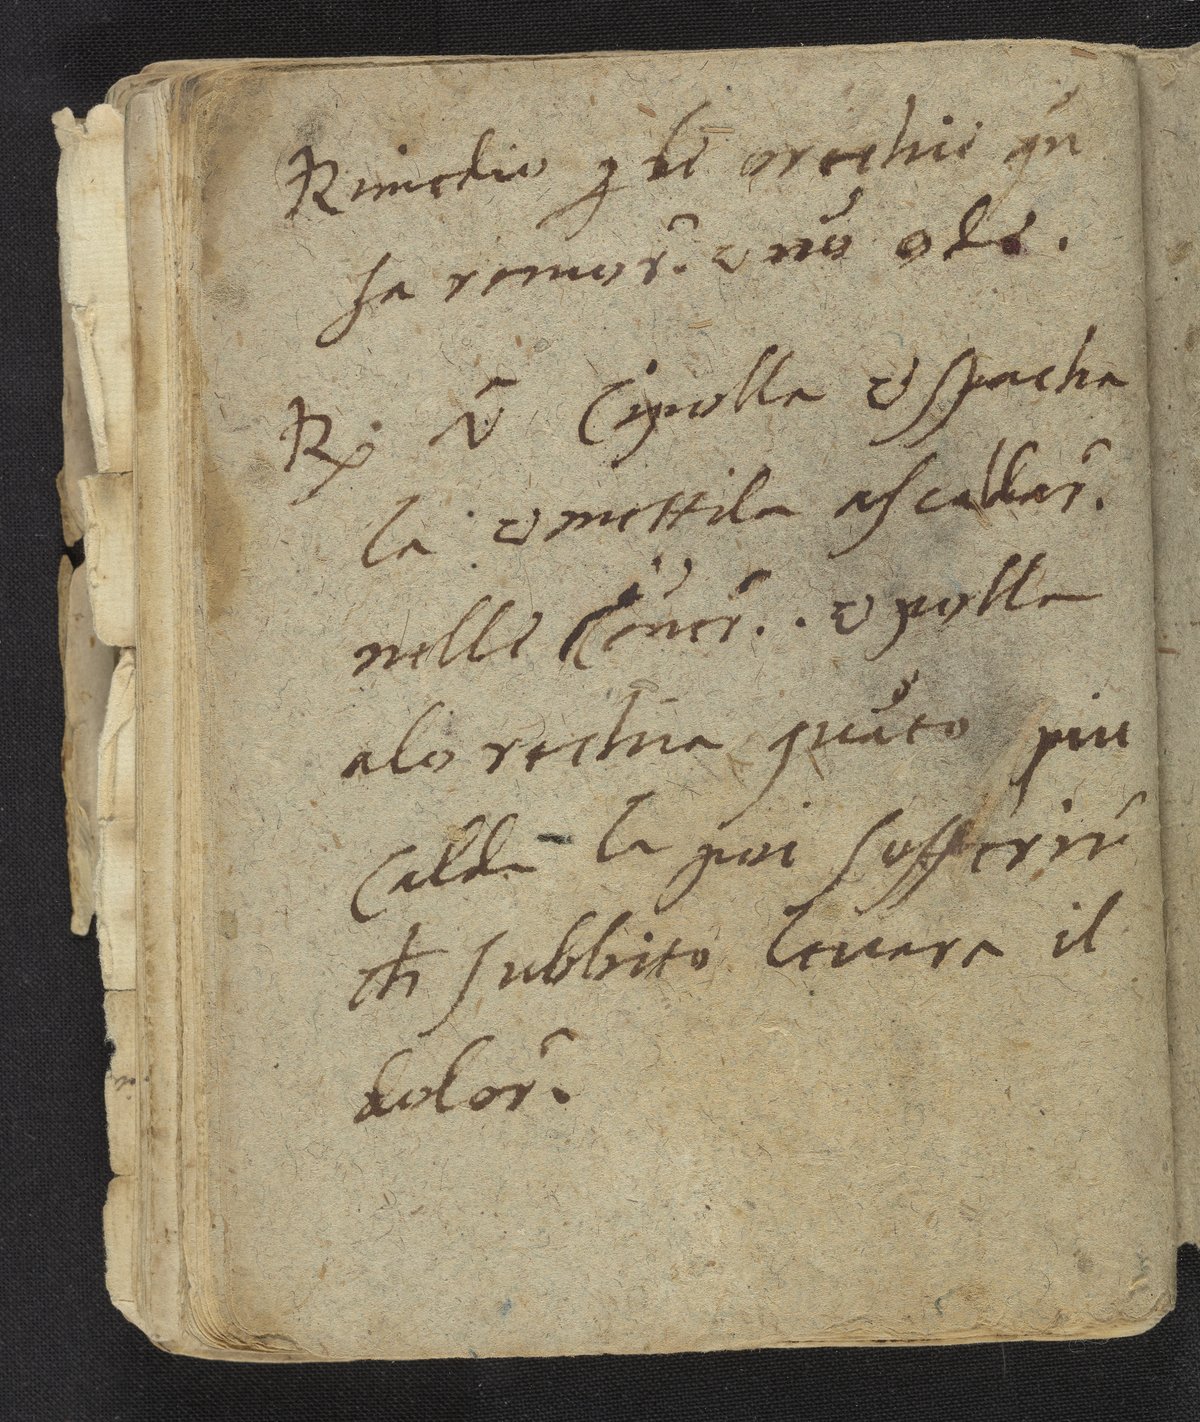 Rimedio ꝑ le orechie qñ
fa remor̃. et nõ ode.
R͓ . ṽ Cipolla et spacha
la . et mettila a scaldar̃.
nelle Cẽner̃. . et polla
alorechia quãto piu
Calda la poi sofferire
ch̃ subbito leuara il
dolor̃.